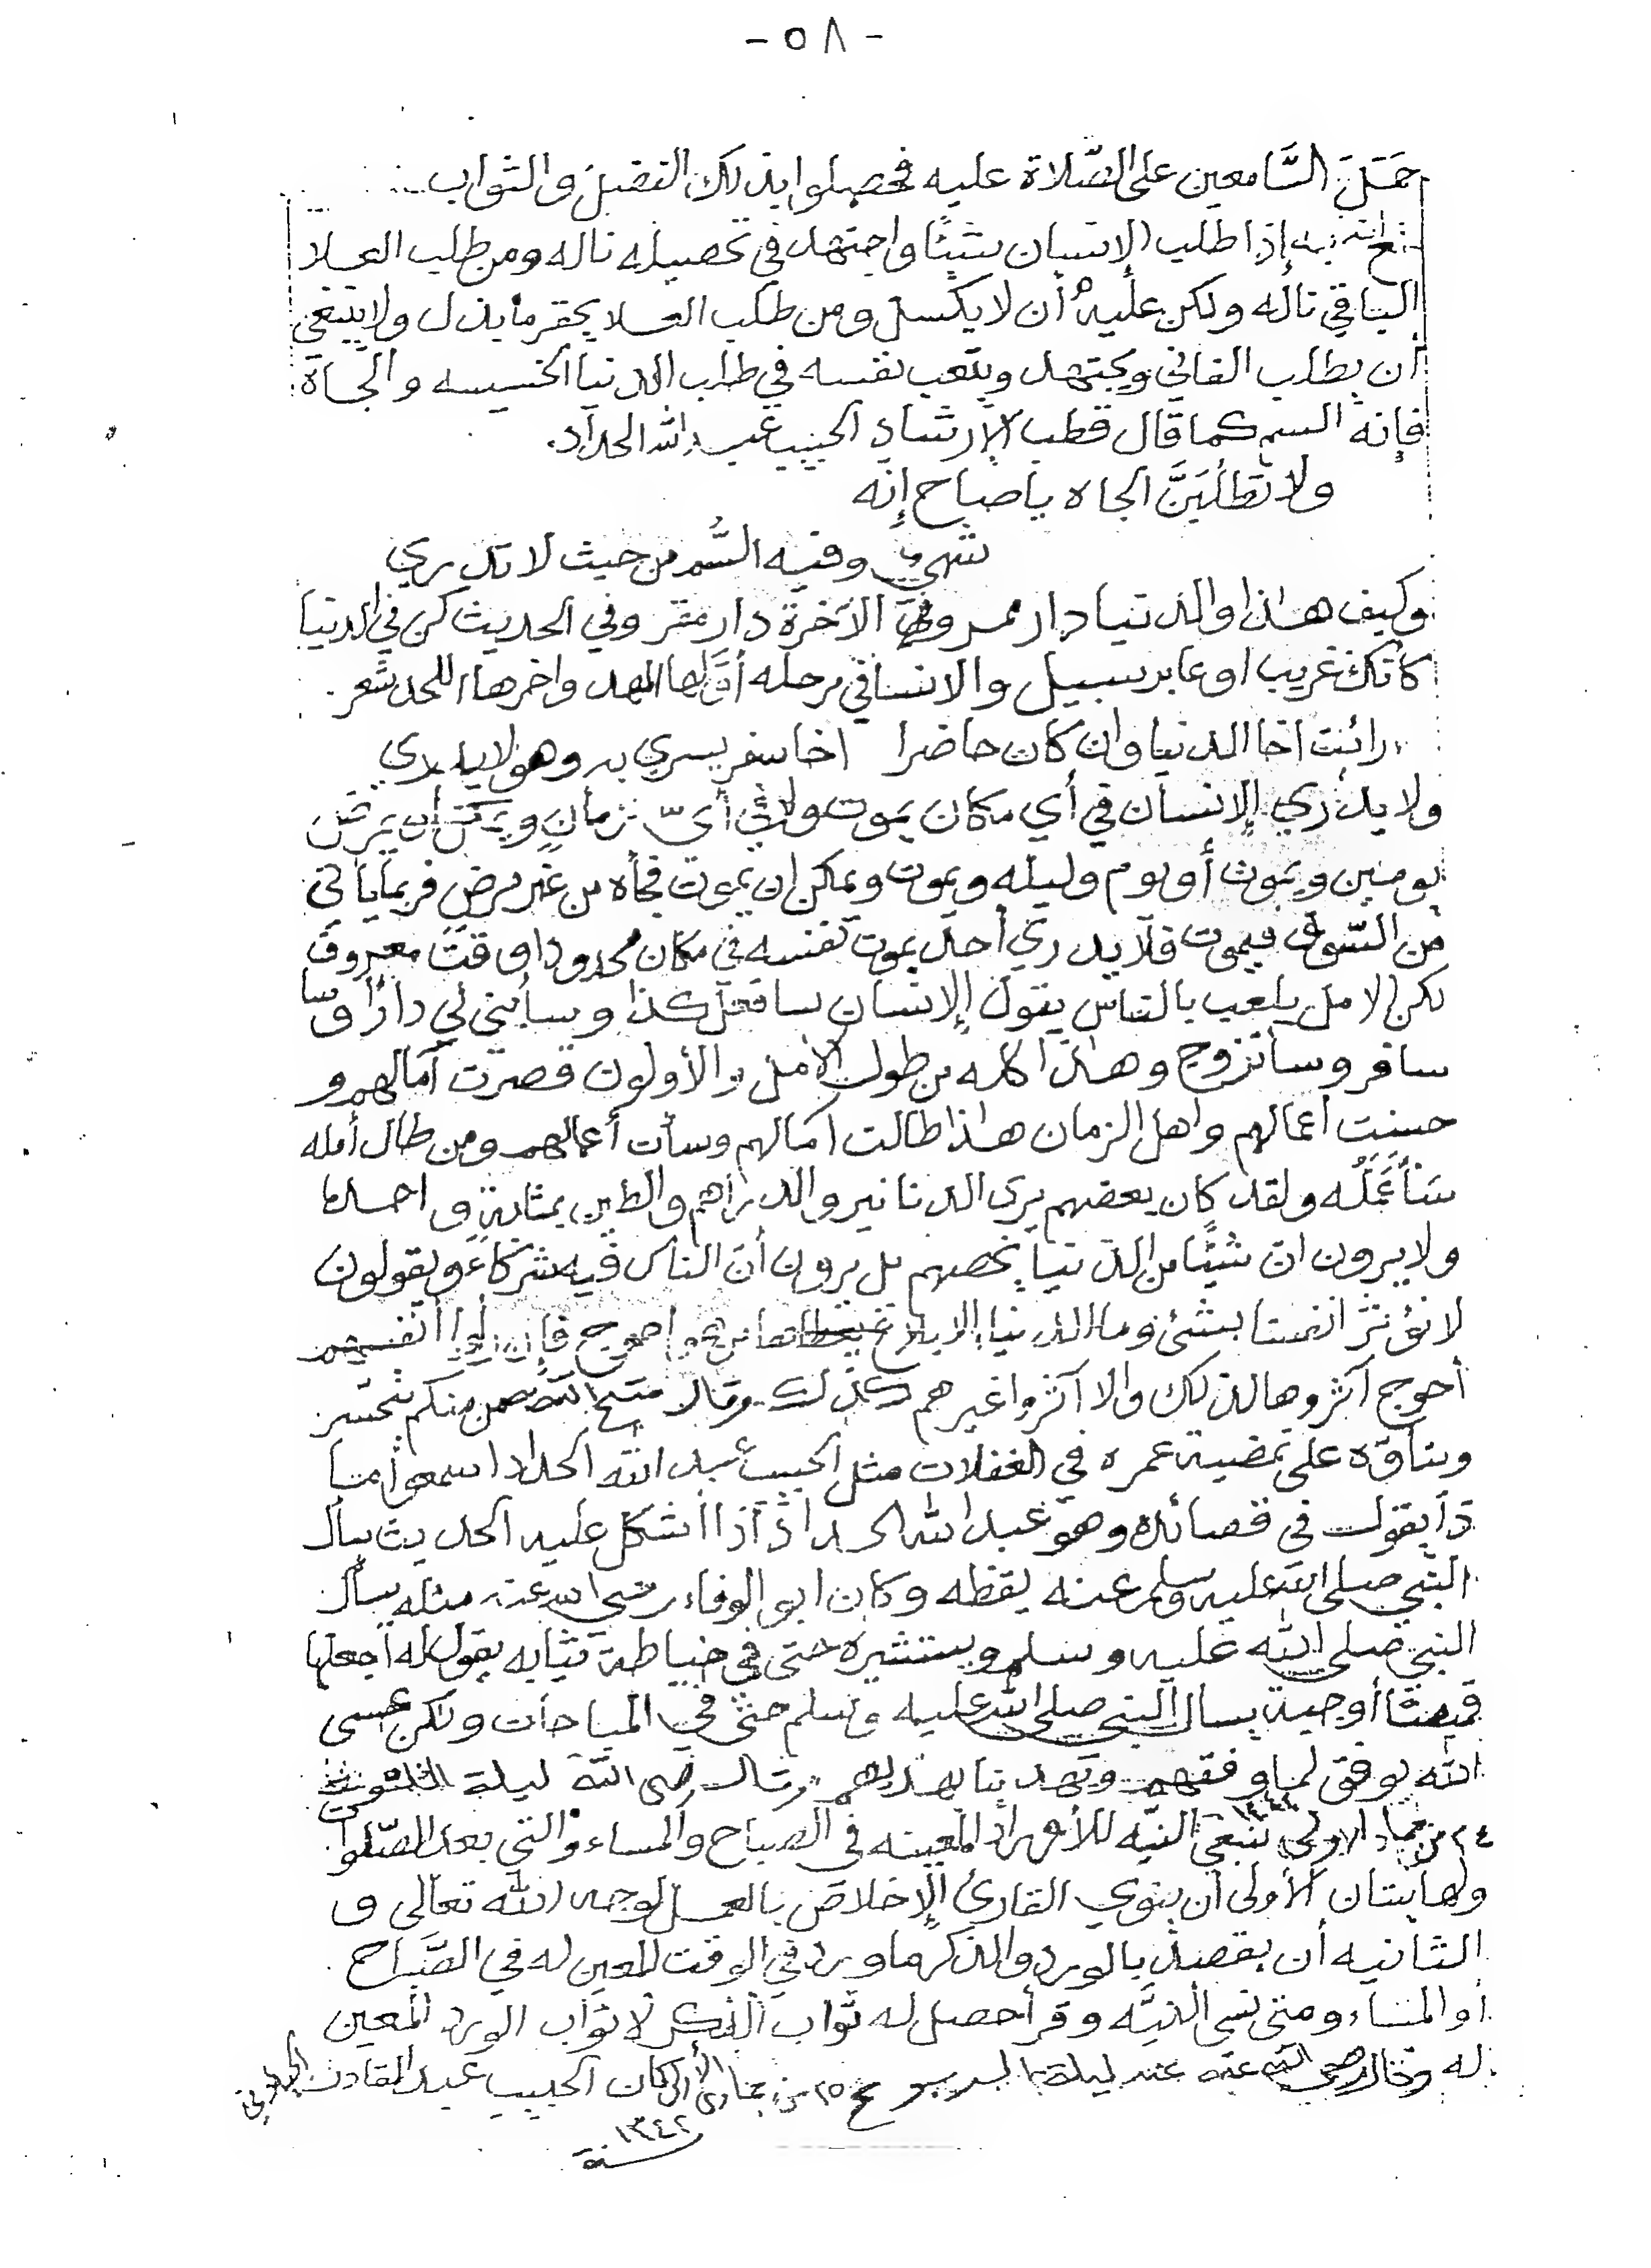 - ٥٨ -
حَمَلَ السَّامعين على الصّلاة عليه فحصلوا بذلك الفضل والثواب
إذا طلب الإنسان شيئًا واجتهد في تحصيله ناله ومن طلب العلا
الباقي ناله ولكن عليه أن لا يكسل ومن طلب العلا يحقر ما بذل ولا ينبغي
أن يطلب الفاني ويجتهد ويتعب نفسه في طلب الدنيا الخسيسه والجاه
فإنه السم كما قال قطب الإرشاد الحبيب عبد الله الحداد.
ولا تطلبَنَّ الجاه يا صاح إنه
شهيّ وفيه السُّم من حيث لا تدري
وكيف هذا والدنيا دار ممر والآخرة دار مقر وفي الحديث كن في الدنيا
كأنك غريب او عابر سبيل والانسان في مرحله أوّلها المهد واخرها اللحد شعر.
رائت اخا الدنيا وان كان حاضرا اخا سفر يسري به وهو لا يدري
ولا يدري الإنسان في أي مكان يموت ولا في أيّ زمانٍ ويمكن أن يمرض
يومين ويموت أو يوم وليله ويموت ويمكن ان يموت فجأه من غير مرض فربما يأتي
من السّوق فيموت فلا يدري أحد يموت نفسه في مكان محدود او وقت معروف
لكن الامل يلعب بالناس يقول الإنسان سافعل كذا وسأبني لي دارًا وسا
سافر وسأتزوج وهذا كله من طول الأمل والأولون قصرت آمالهم و
حسنت اعمالهم واهل الزمان هذا طالت امالهم وسأت أعمالهم ومن طال أمله
سَأَ عَمَلُه ولقد كان بعضهم يرى الدنانير والدراهم والطين بمثابةٍ واحدة
ولا يرون ان شيئًا من الدنيا يخصهم بل يرون أن الناس فيه شركاء ويقولون
لا نؤثر انفسنا بشئ وما الدنيا إلا بلاغ من هو احوج فإن رأوا أنفسهم
أحوج آثروها لذلك والا آثروا غيرهم كذلك وقال متع الله به من منكم يتحسر
ويتأوّه على تمضية عمره في الغفلات مثل الحبيب عبد الله الحداد اسمعوا ما
ذا يقول في قصائده وهو عبد الله الحداد اذا أشكل عليه الحديث يسأل
النبي صلى الله عليه وسلم عنه يقظه وكان ابو الوفاء رضي الله عنه مثله يسأل
النبي صلى الله عليه وسلم ويستشيره حتى في خياطة ثيابه يقول له أجعلها
قميصًا أو جبة يسال النبي صلى الله عليه وسلم حتى في المباحات ولكن عسى
الله يوفق لما وفقهم ويهدينا بهديهم وقال رضى الله ليلة الثلوث
٢٤ من جماد الاولى ١٣٤٢ تنبغي النيّه للأوراد المعينه في الصباح والمساء والتي بعد الصّلوات
ولها نيتان الأولى أن ينوي القارئ الإخلاص بالعمل لوجه الله تعالى و
الثانيه أن يقصد بالورد والذكر ما ورد في الوقت المعين له في الصَّباح
أو المساء ومتى نسي النيَّه وقرأ حصل له ثواب الذكر لا ثواب الورد المعين
له وقال رضي الله عنه ليلة الربوع ٢٥ من جمادى الأولى كان الحبيب عبد القادر الجيلاني
سنة ١٣٤٢